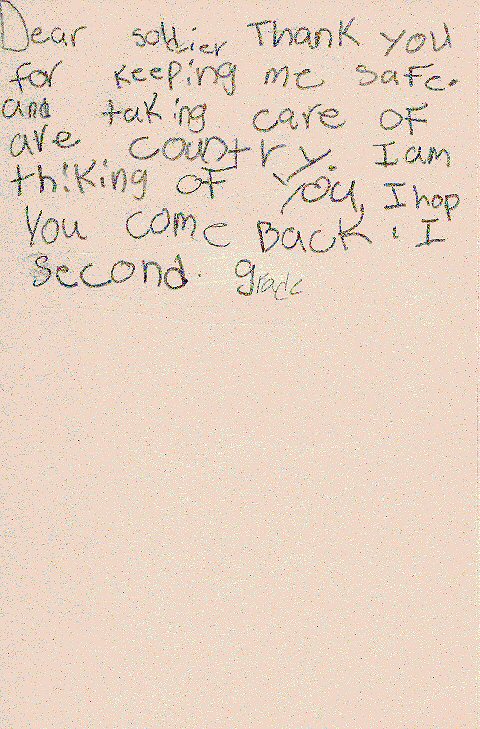 Dear soldier Thank you
for keeping me safe.
and taking care of
are country. I am
thiking of you, I hop
you come Back. I
second. grade